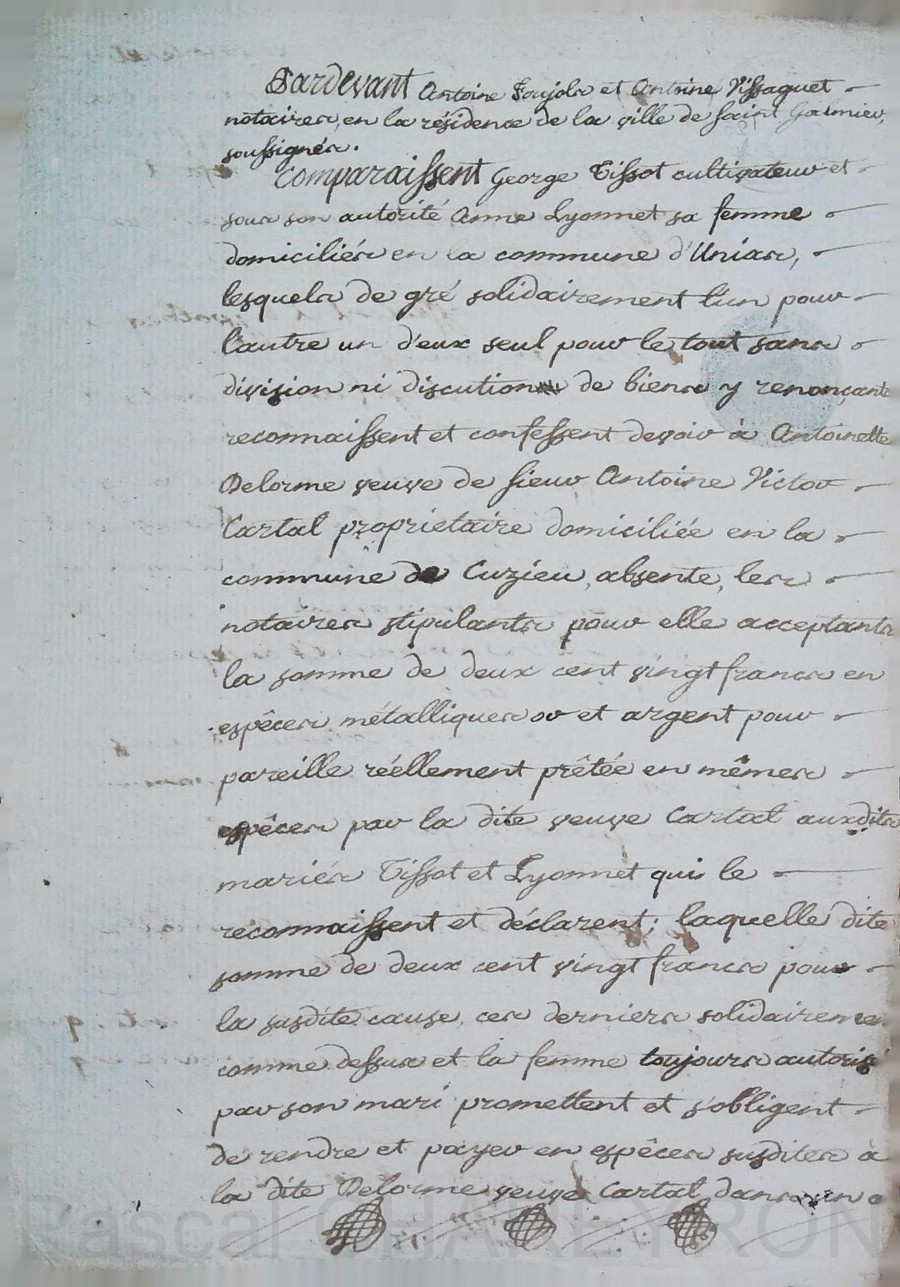 Pardevant Antoine Foujols et Antoine Vissaguet
notaires, en la résidence de la ville de Saint Galmier,
soussignés.
Comparaissent George Tissot cultivateur et
sous son autorité Anne Lyonnet sa femme
domiciliés en la commune d'Unias,
lesquels de gré solidairement l'un pour
l'autre un d'eux seul pour le tout sans
division ni discution de biens y renonçant
reconnaissent et confessent devoir à Antoinette
Delorme veuve de sieur Antoine Victor
Cartal proprietaire domiciliée en la
commune de Cuzieu, absente, les
notaires stipulants pour elle acceptants
la somme de deux cent vingt francs en
espêces métalliques or et argent pour
pareille réellement prêtée en mêmes
espêces par la dite veuve Cartal auxdits
mariés Tissot et Lyonnet qui le
reconnaissent et déclarent; laquelle dite
somme de deux cent vingt francs pour
la susdite cause, ces derniers solidairement
comme dessus et la femme toujours autorisé
par son mari promettent et s'obligent
de rendre et payer en espêces susdites à
la dite Delorme veuve Cartal dans un
Pascal CHAREYRON